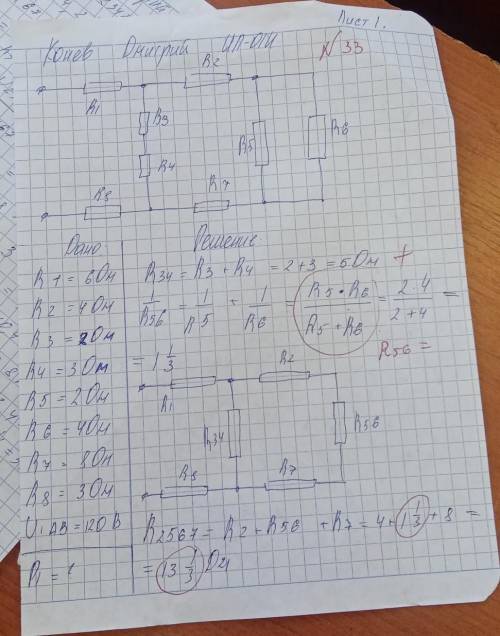 Лист 1.
Конев Дмитрий
№33
R1
R2
R3
R4
R5
R6
R7
R8
Дано
Решение
R1 = 6Ом
R2 = 4Ом
R3 = 2Ом
R4 = 3Ом
R5 = 2Ом
R6 = 4Ом
R7 = 8Ом
R8 = 3Ом
U1AB = 120 В
P1 = ?
R34 = R3 + R4 = 2+3 = 5Ом +
1/R56 = 1/R5 + 1/R6 = R5 • R6/R5 + R6 = 2 • 4/2 + 4 =
R56 =
= 1 1/3
R1
R2
R34
R56
R8
R7
R2567 = R2 + R56 + R7 = 4 + 1 1/3 + 8 =
= 13 1/3 Ом